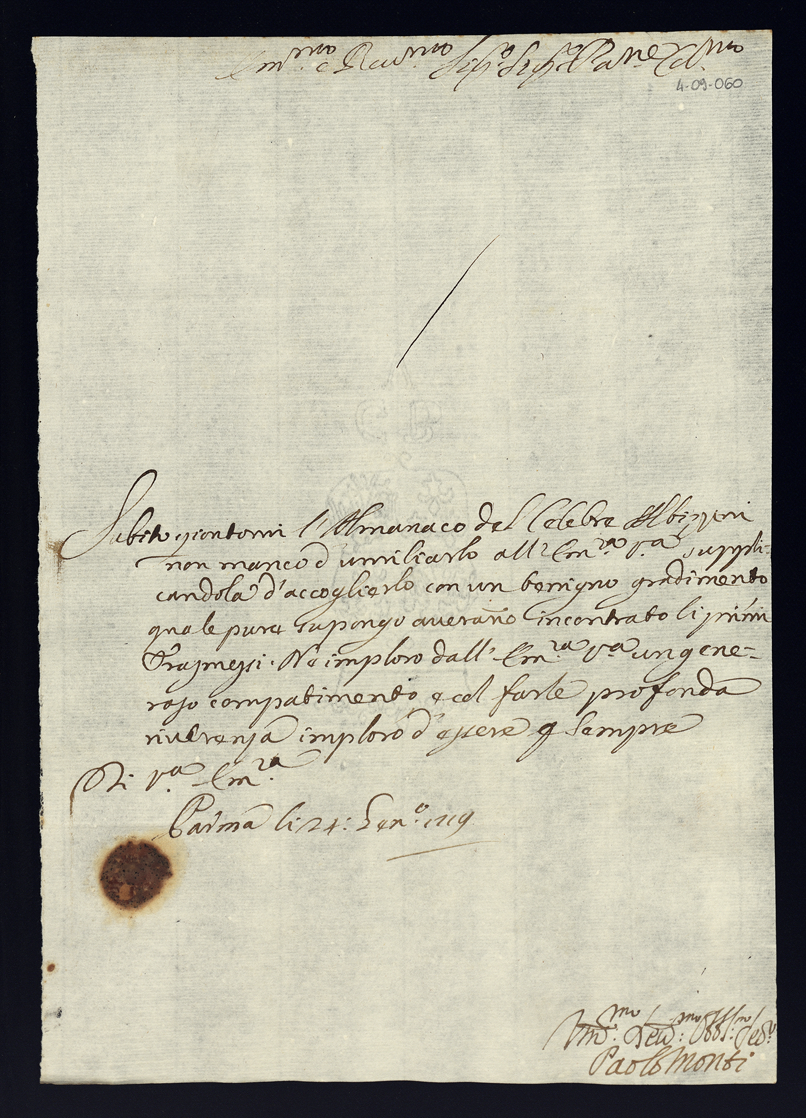 Em.mo e Rev.mo Sig.r Sig.r e Pa.ne Col.mo
4-09-060
Subito giontomi l'Almanaco del Celebre Albizzini
non manco d'umiliarlo all' Em.za V.a suppli-
candola d'accoglierlo con un benigno gradimento
quale pure supongo averanno incontrato li primi
Trasmessi. Ne imploro dall' Em.za V.a un gene=
roso compatimento, e col farle profonda
riverenza imploro d'essere p sempre
Di V.a Em.za
Parma li 24: Gen.o 1719
Um.mo Dev.mo Obb.mo Ser.
Paolo Monti